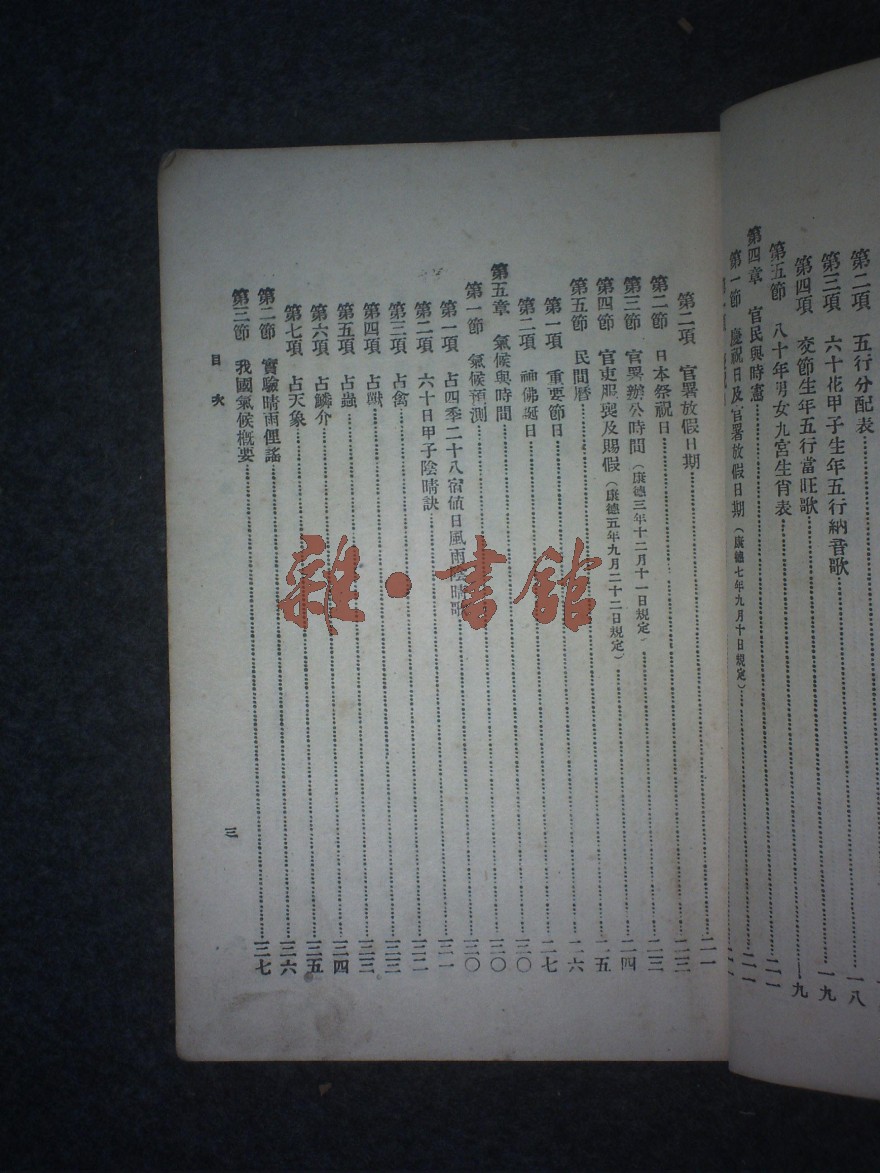 第二項 五行分配表 一八
第三項 六十花甲子生年五行納音歌 一九
第四項 交節生年五行當旺歌 九
第五節 八十年男女九宮生肖表 二一
第四章 官民與時憲 二一
第一節 慶祝日及官署放假日期(康德七年九月十日規定)
第二項 官署放假日期 二一
第二節 日本祭祝日 二三
第三節 官署辦公時間(康德三年十二月十一日規定) 二三
第四節 官吏服喪及賜假(康德五年九月二十二日規定) 二四
第五節 民間曆 二五
第一項 重要節日 二六
第二項 神佛誕日 二七
第五章 氣候與時間 三〇
第一節 氣候預測 三〇
第一項 占四季二十八宿値日風雨陰晴歌 三〇
第二項 六十日甲子陰晴訣 三一
第三項 占禽 三二
第四項 占獸 三三
第五項 占蟲 三三
第六項 占鱗介 三四
第七項 占天象 三五
第二節 實驗晴雨俚謠 三六
第三節 我國氣候槪要 三七
目次 三
雜·書館